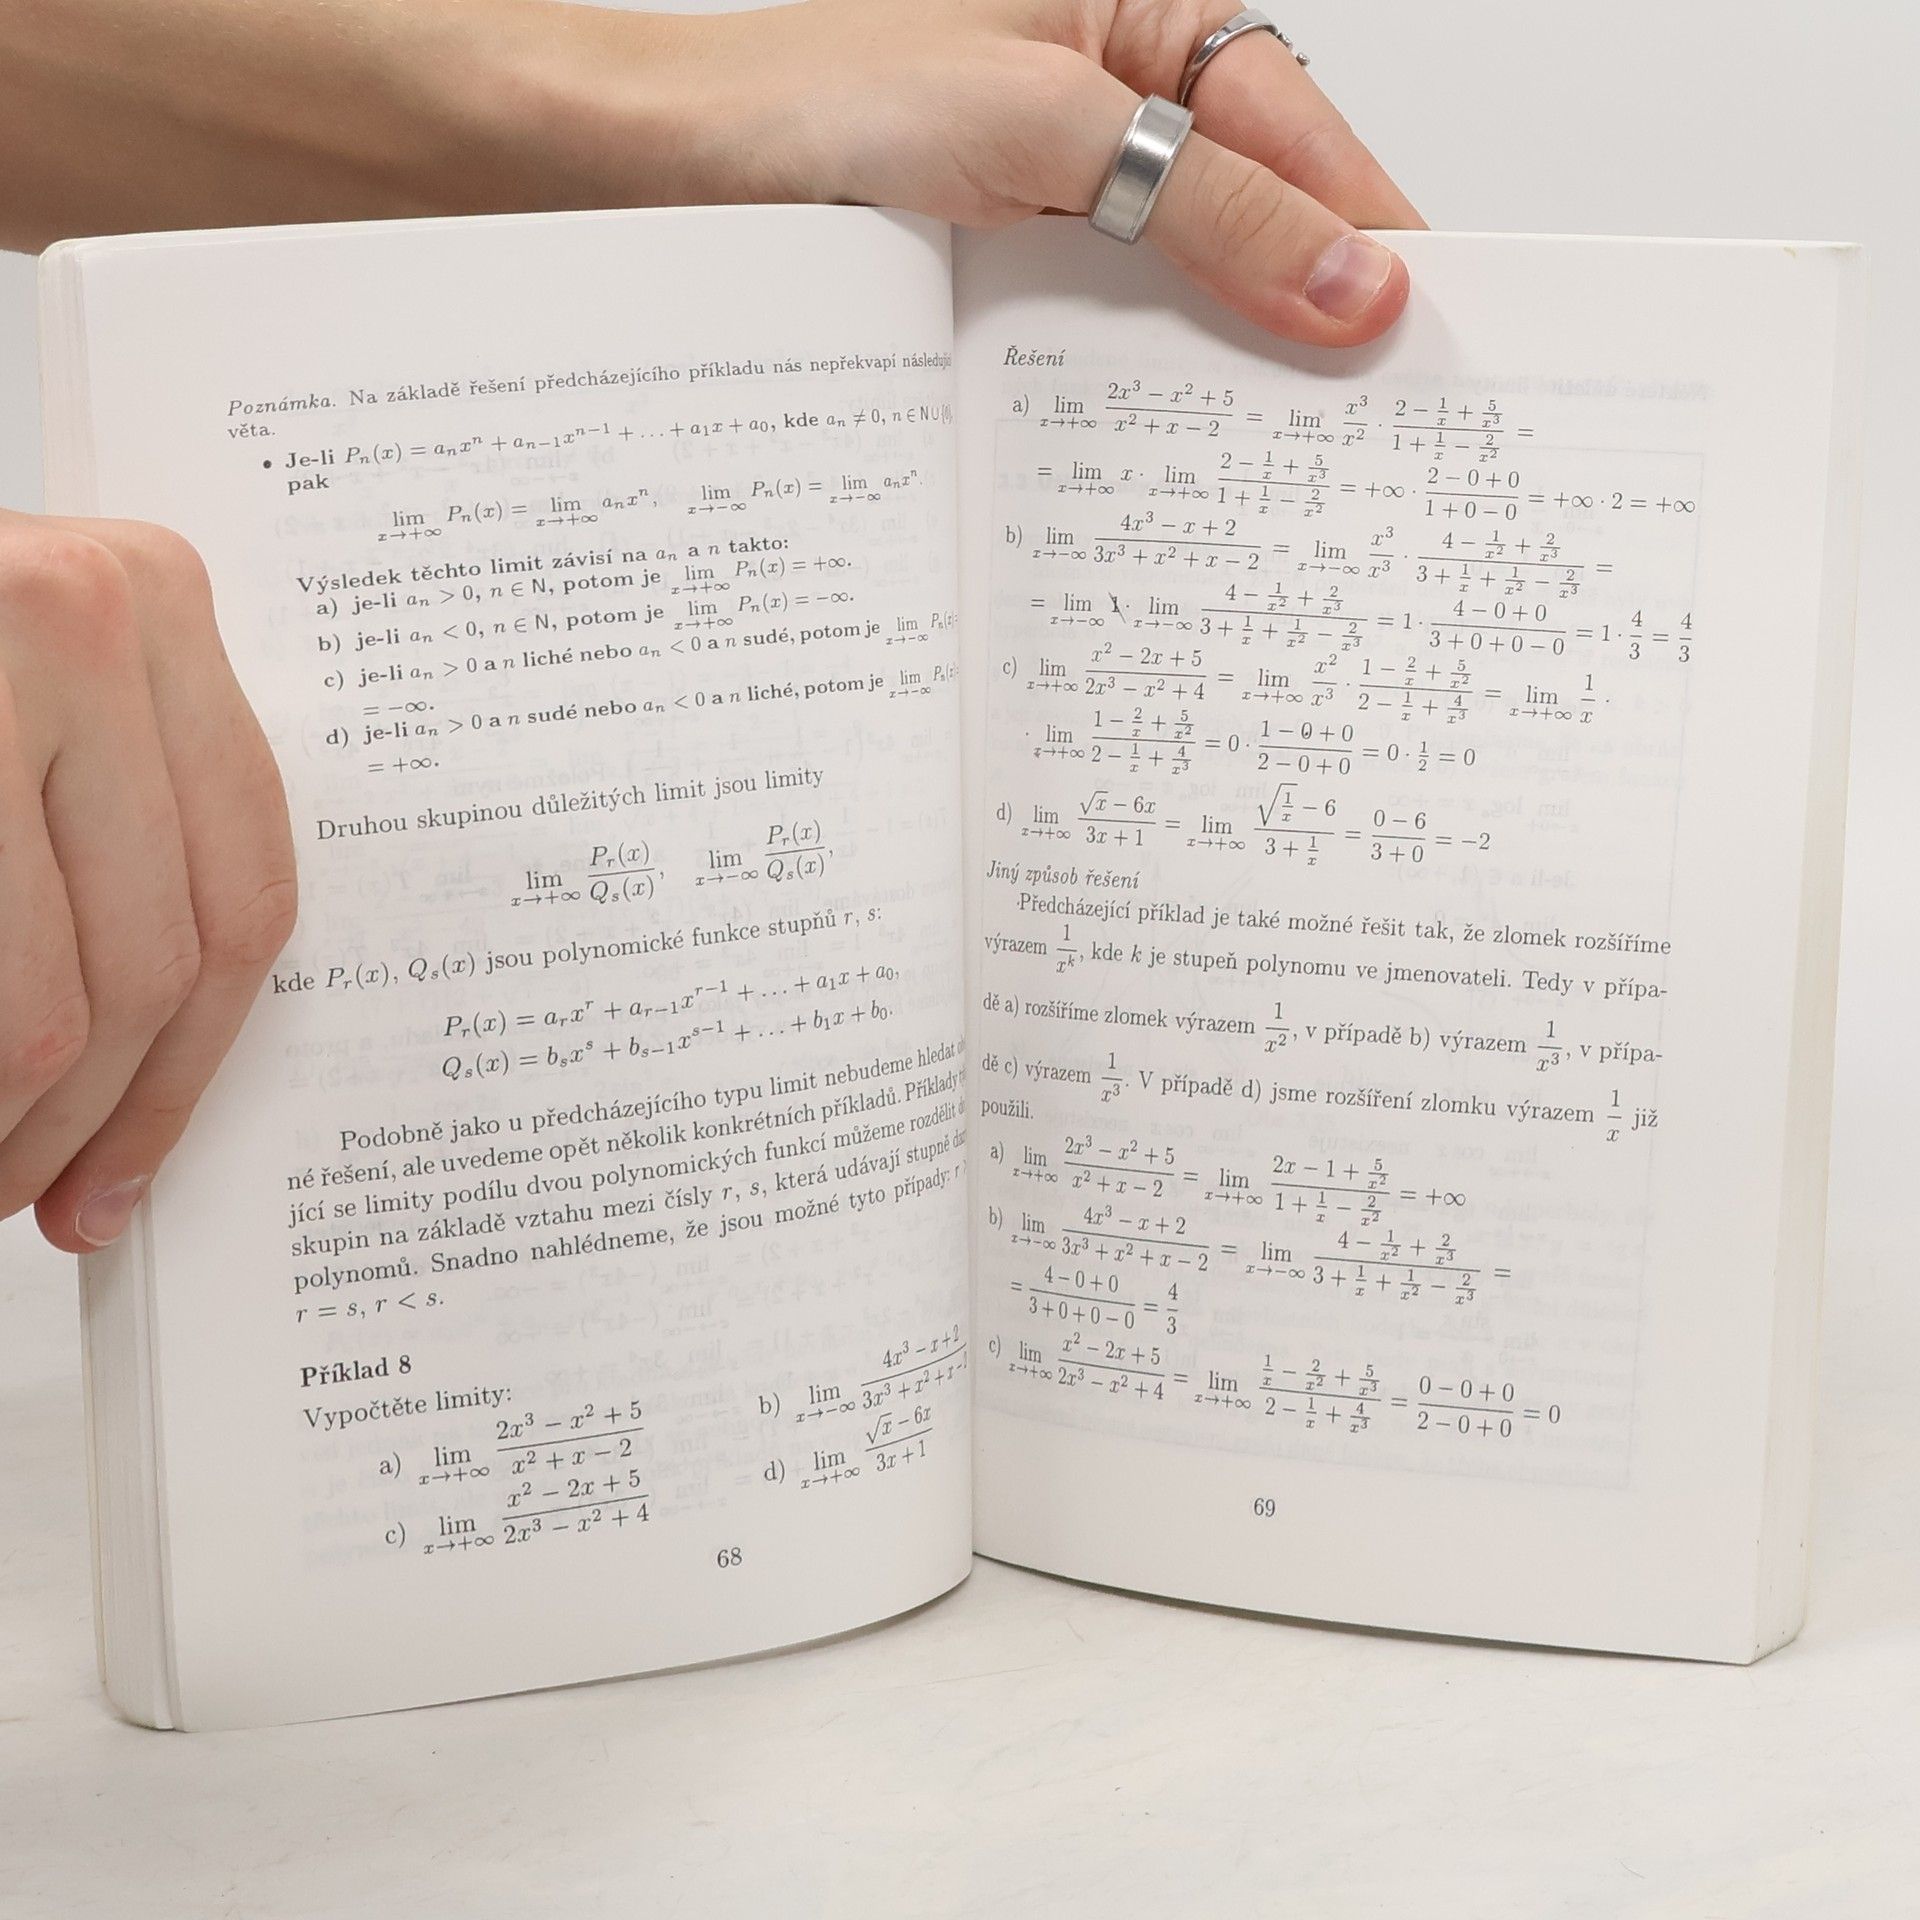 Poznámka. Na základě řešení předcházejícího příkladu nás nepřekvapí
věta.
• Je-li Pₙ(x) = aₙxⁿ + aₙ₋₁xⁿ⁻¹ + … + a₁x + a₀, kde aₙ ≠ 0, n ∈ N ∪ {0},
pak
lim_{x→+∞} Pₙ(x) = lim_{x→+∞} aₙxⁿ, lim_{x→−∞} Pₙ(x) = lim_{x→−∞} aₙxⁿ.
Výsledek těchto limit závisí na aₙ a n takto:
a) je-li aₙ > 0, n ∈ N, potom je lim_{x→+∞} Pₙ(x) = +∞.
b) je-li aₙ < 0, n ∈ N, potom je lim_{x→+∞} Pₙ(x) = −∞.
c) je-li aₙ > 0 a n liché nebo aₙ < 0 a n sudé, potom je lim_{x→−∞} Pₙ(x) =
= −∞.
d) je-li aₙ > 0 a n sudé nebo aₙ < 0 a n liché, potom je lim_{x→−∞} Pₙ(x) =
= +∞.
Druhou skupinou důležitých limit jsou limity
lim_{x→+∞} Pᵣ(x)/Qₛ(x), lim_{x→−∞} Pᵣ(x)/Qₛ(x),
kde Pᵣ(x), Qₛ(x) jsou polynomické funkce stupňů r, s:
Pᵣ(x) = aᵣxʳ + aᵣ₋₁xʳ⁻¹ + … + a₁x + a₀,
Qₛ(x) = bₛxˢ + bₛ₋₁xˢ⁻¹ + … + b₁x + b₀.
Podobně jako u předcházejícího typu limit nebudeme hledat
né řešení, ale uvedeme opět několik konkrétních příkladů. Příklady
jící se limity podílu dvou polynomických funkcí můžeme rozdělit do
skupin na základě vztahu mezi čísly r, s, která udávají stupně
polynomů. Snadno nahlédneme, že jsou možné tyto případy: r
r = s, r < s.
Příklad 8
Vypočtěte limity:
a) lim_{x→+∞} (2x³ − x² + 5)/(x² + x − 2) b) lim_{x→−∞} (4x³ − x + 2)/(3x³ + x² + x −
c) lim_{x→+∞} (x² − 2x + 5)/(2x³ − x² + 4) d) lim_{x→+∞} (√x − 6x)/(3x + 1)
68
Řešení
a) lim_{x→+∞} (2x³ − x² + 5)/(x² + x − 2) = lim_{x→+∞} x³/x² · (2 − 1/x + 5/x³)/(1 + 1/x − 2/x²) =
= lim_{x→+∞} x · lim_{x→+∞} (2 − 1/x + 5/x³)/(1 + 1/x − 2/x²) = +∞ · (2 − 0 + 0)/(1 + 0 − 0) = +∞ · 2 = +∞
b) lim_{x→−∞} (4x³ − x + 2)/(3x³ + x² + x − 2) = lim_{x→−∞} x³/x³ · (4 − 1/x² + 2/x³)/(3 + 1/x + 1/x² − 2/x³) =
= lim_{x→−∞} 1 · lim_{x→−∞} (4 − 1/x² + 2/x³)/(3 + 1/x + 1/x² − 2/x³) = 1 · (4 − 0 + 0)/(3 + 0 + 0 − 0) = 1 · 4/3 = 4/3
c) lim_{x→+∞} (x² − 2x + 5)/(2x³ − x² + 4) = lim_{x→+∞} x²/x³ · (1 − 2/x + 5/x²)/(2 − 1/x + 4/x³) = lim_{x→+∞} 1/x ·
· lim_{x→+∞} (1 − 2/x + 5/x²)/(2 − 1/x + 4/x³) = 0 · (1 − 0 + 0)/(2 − 0 + 0) = 0 · 1/2 = 0
d) lim_{x→+∞} (√x − 6x)/(3x + 1) = lim_{x→+∞} (√(1/x) − 6)/(3 + 1/x) = (0 − 6)/(3 + 0) = −2
Jiný způsob řešení
Předcházející příklad je také možné řešit tak, že zlomek rozšíříme
výrazem 1/xᵏ, kde k je stupeň polynomu ve jmenovateli. Tedy v přípa-
dě a) rozšíříme zlomek výrazem 1/x², v případě b) výrazem 1/x³, v přípa-
dě c) výrazem 1/x³. V případě d) jsme rozšíření zlomku výrazem 1/x již
použili.
a) lim_{x→+∞} (2x³ − x² + 5)/(x² + x − 2) = lim_{x→+∞} (2x − 1 + 5/x²)/(1 + 1/x − 2/x²) = +∞
b) lim_{x→−∞} (4x³ − x + 2)/(3x³ + x² + x − 2) = lim_{x→−∞} (4 − 1/x² + 2/x³)/(3 + 1/x + 1/x² − 2/x³) =
= (4 − 0 + 0)/(3 + 0 + 0 − 0) = 4/3
c) lim_{x→+∞} (x² − 2x + 5)/(2x³ − x² + 4) = lim_{x→+∞} (1/x − 2/x² + 5/x³)/(2 − 1/x + 4/x³) = (0 − 0 + 0)/(2 − 0 + 0) = 0
69